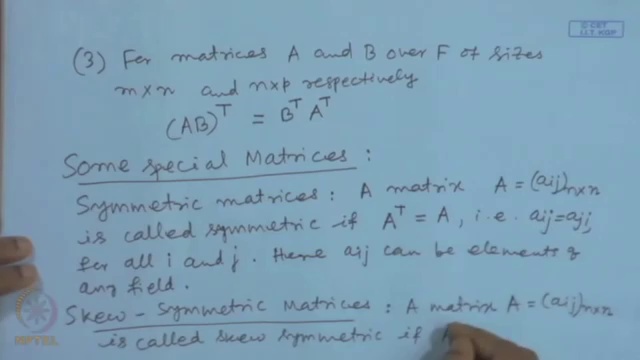 © CET
I.I.T. KGP
(3) For matrices A and B over F of sizes
m×n and n×p respectively
(AB)^T = B^T A^T
Some special Matrices :
Symmetric matrices : A matrix A = (aij)n×n
is called symmetric if A^T = A, i.e. aij = aji,
for all i and j. Here aij can be elements of
any field.
Skew-Symmetric Matrices : A matrix A = (aij)n×n
is called skew symmetric if A
NPTEL